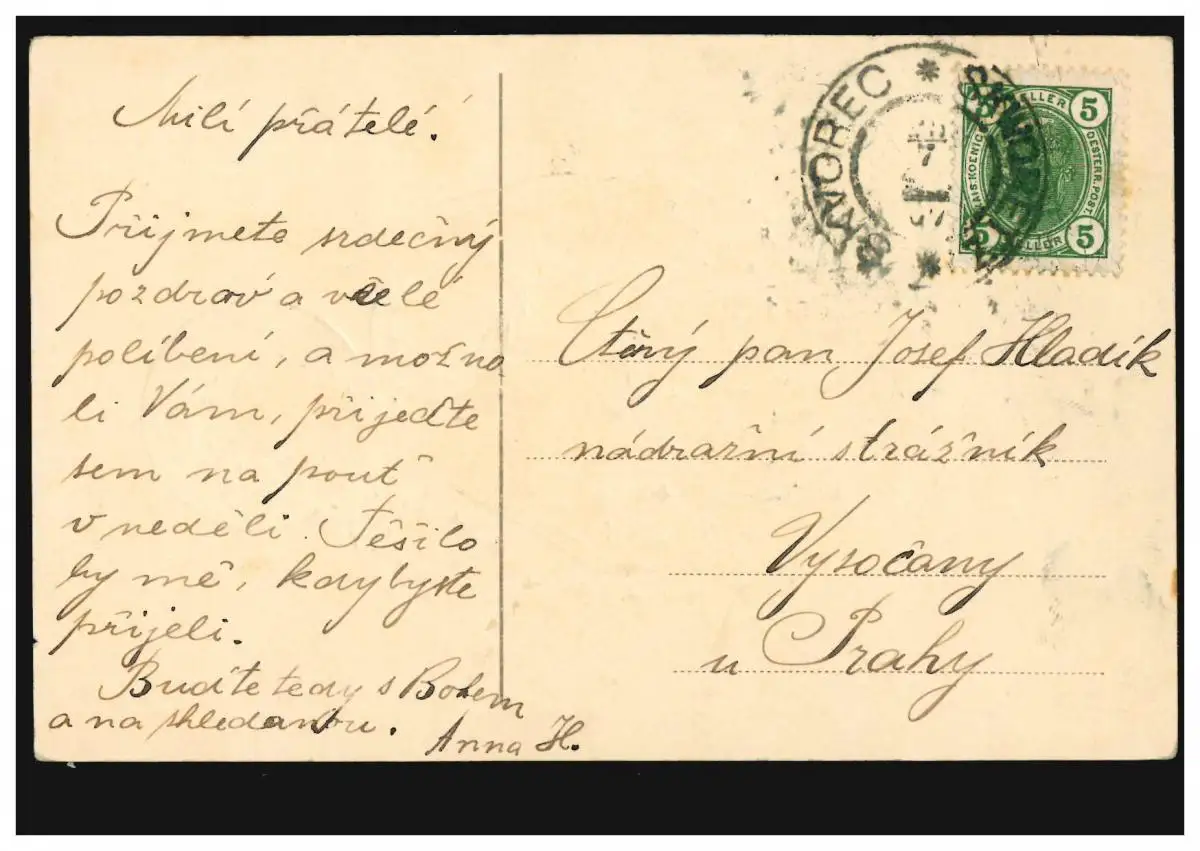 Milí přátelé.
Přijmete srdečný
pozdrav a vřelé
políbení, a možno
li Vám, přijeďte
sem na pouť
v neděli. Těšilo
by mě, kdybyste
přijeli.
Buďte tedy s Bohem
a na shledanou.
Anna H.
SKWOREC * SKWOREC *
VII
7
07
HELLER
5 5
OESTERR. POST.
5 5
HELLER
Ctěný pan Josef Hladík
nádražní strážník
Vysočany
u Prahy